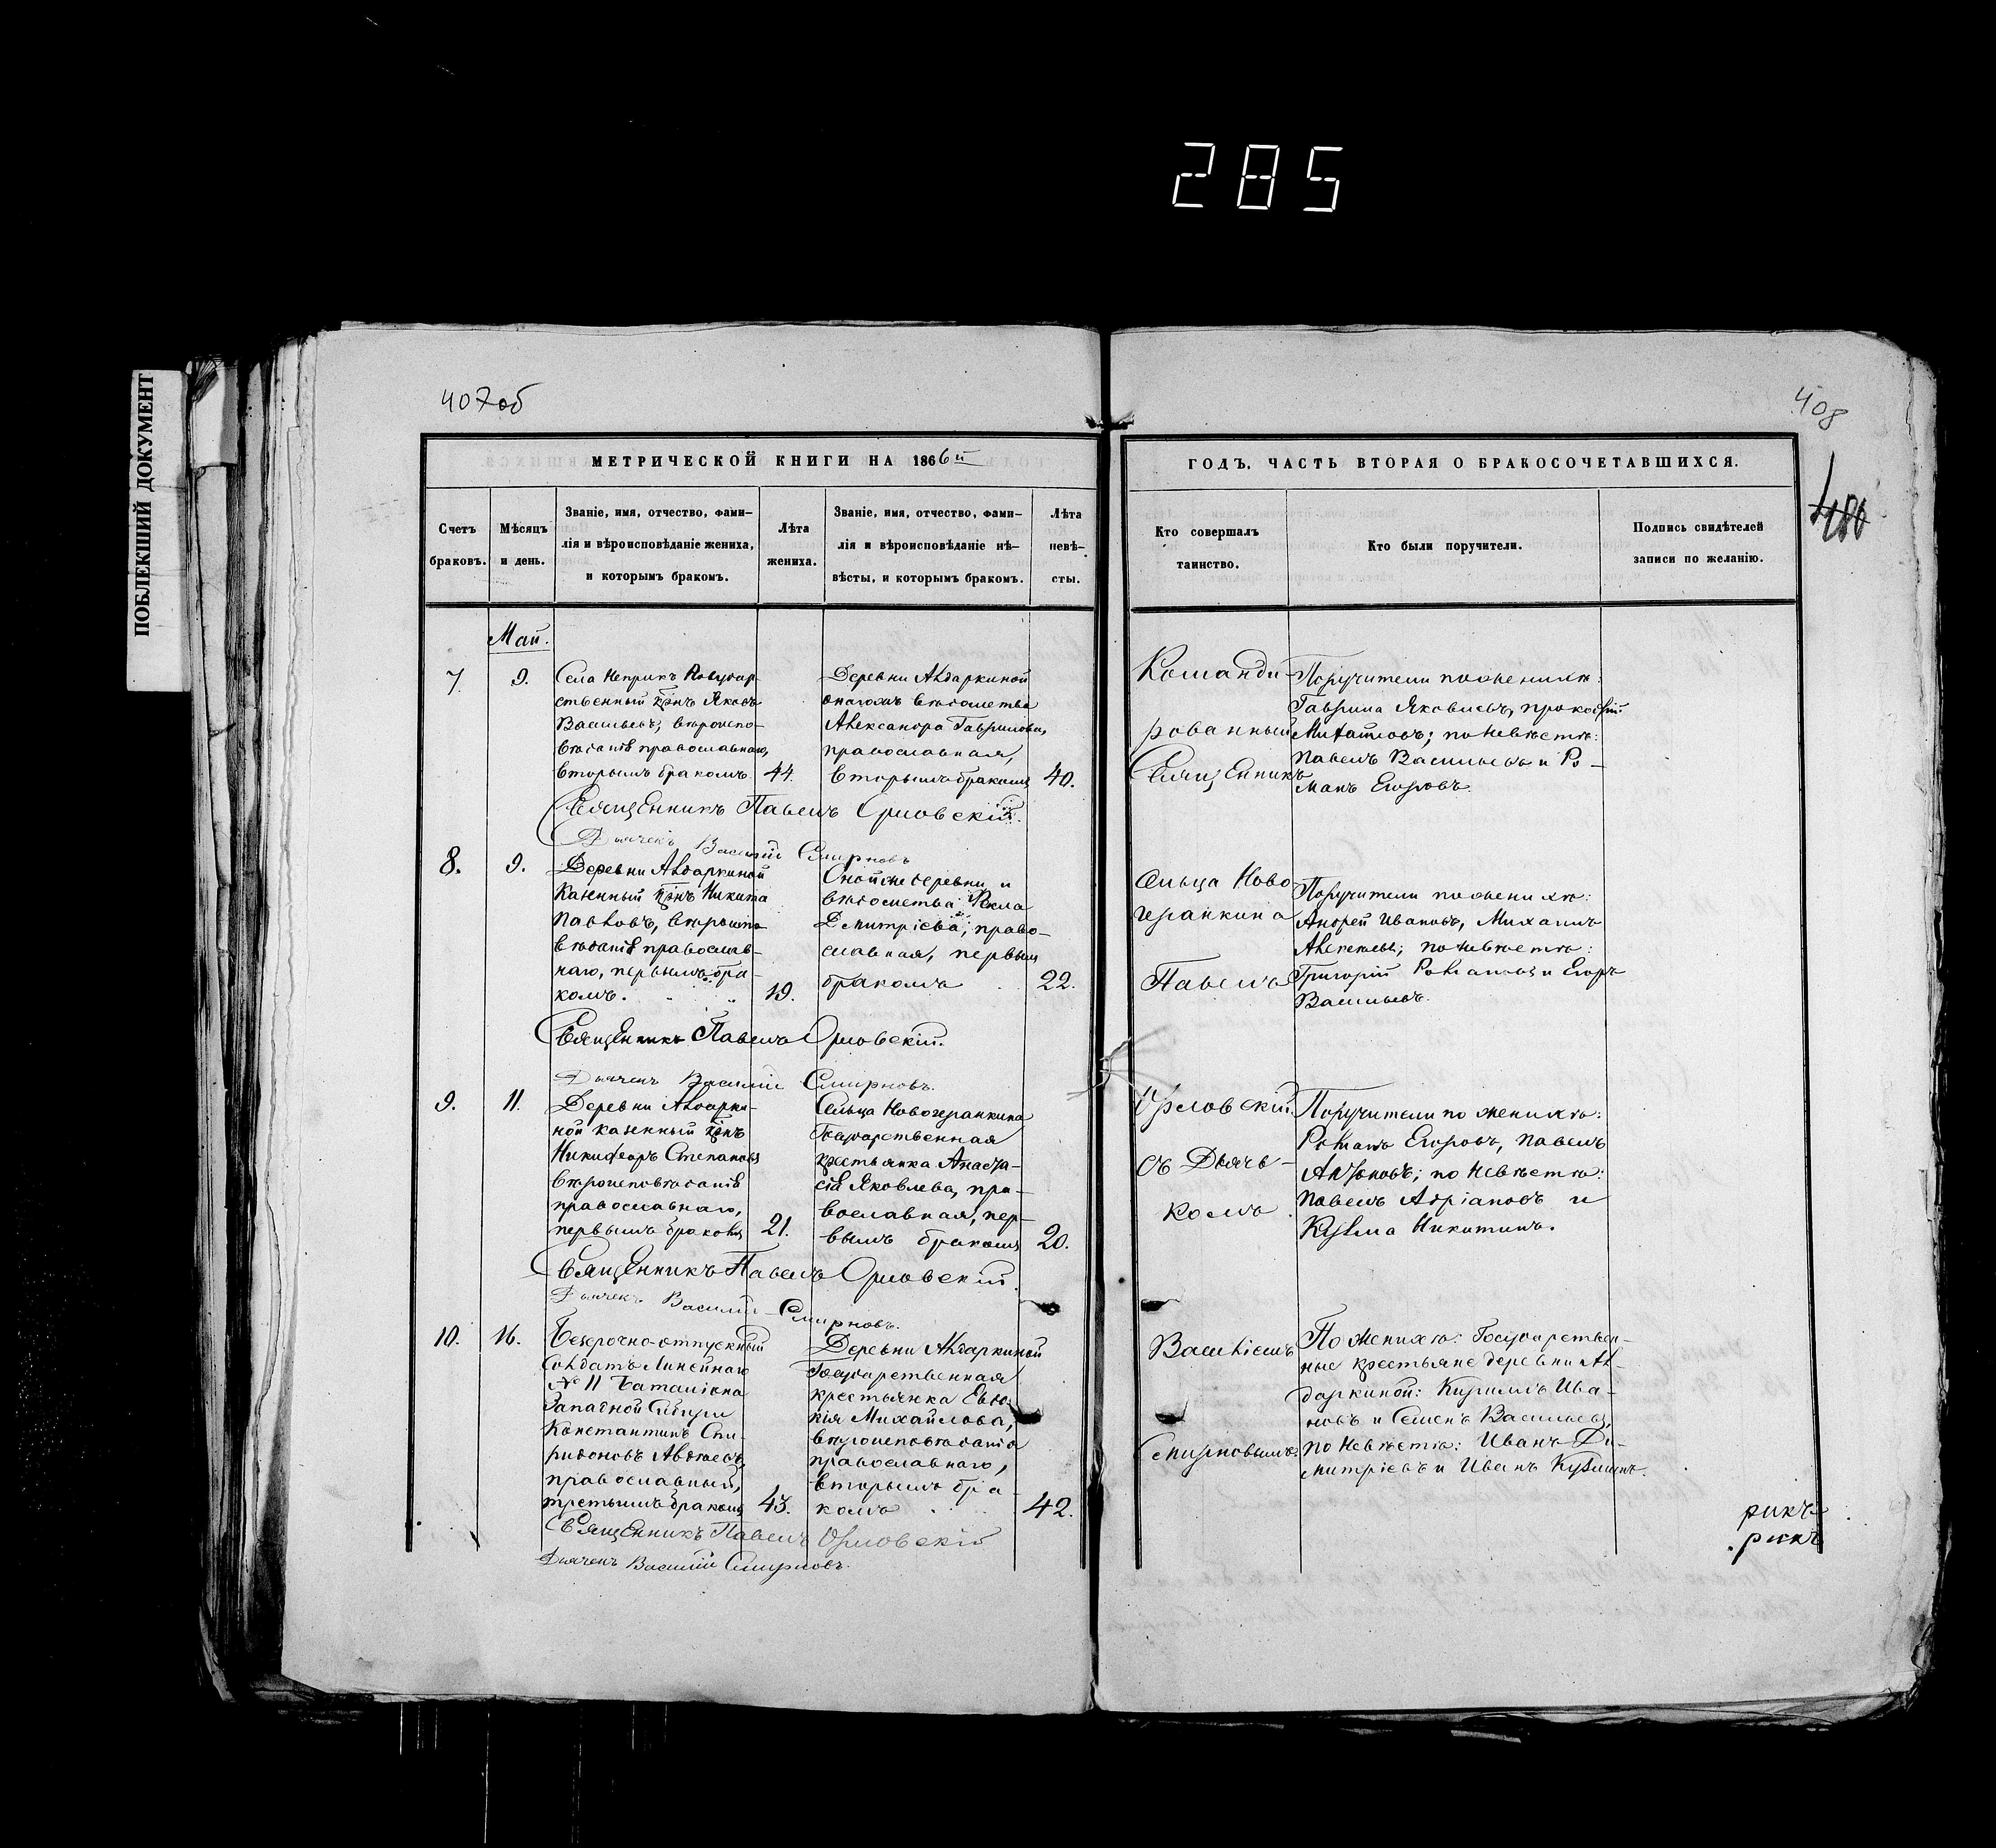 285
ПОБЛЕКШИЙ ДОКУМЕНТ
407об
МЕТРИЧЕСКОЙ КНИГИ НА 1866й
Счетъ браковъ.
Мѣсяцъ и день.
Званіе, имя, отчество, фами-
лія и вѣроисповѣданіе жениха,
и которымъ бракомъ.
Лѣта
жениха.
Званіе, имя, отчество, фами-
лія и вѣроисповѣданіе нѣ-
вѣсты, и которымъ бракомъ.
Лѣта
невѣ-
сты.
Май.
7. 9.
Села Неприкъ Государ-
ственный крнъ Яковъ
Васильевъ, вѣроиспо-
вѣданія православнаго,
вторымъ бракомъ 44.
Деревни Авдаркиной
онагожъ вѣдомства
Александра Гаврилова,
православная,
вторымъ бракомъ 40.
Священникъ Павелъ Орловскій.
Дьячекъ Василій Смирновъ
8. 9.
Деревни Авдаркиной
Казенный крнъ Никита
Павловъ, вѣроиспо-
вѣданія православ-
наго, первымъ бра-
комъ. 19.
Онойже деревни и
вѣдомства Фекла
Дмитріева, право-
славная, первымъ
бракомъ 22.
Священникъ Павелъ Орловскій.
Дьячекъ Василій Смирновъ.
9. 11.
Деревни Авдарки-
ной казенный крнъ
Никифоръ Степановъ
вѣроисповѣданія
православнаго,
первымъ бракомъ 21.
Сельца Новогеранкина
Государственная
крестьянка Анаста-
сія Яковлева, пра-
вославная, пер-
вымъ бракомъ 20.
Священникъ Павелъ Орловскій
Дьячекъ Василій Смирновъ.
10. 16.
Безсрочно-отпускный
Солдатъ Линейнаго
№ 11 Баталіона
Западной Сибири
Константинъ Спи-
ридоновъ Авдѣевъ,
православный,
третьимъ бракомъ 43.
Деревни Авдаркиной
Государственная
крестьянка Евдо-
кія Михайлова,
вѣроисповѣданія
православнаго,
вторымъ бра-
комъ 42.
Священникъ Павелъ Орловскій
Дьячекъ Василій Смирновъ.
408
ГОДЪ. ЧАСТЬ ВТОРАЯ О БРАКОСОЧЕТАВШИХСЯ.
Кто совершалъ
таинство.
Кто были поручители.
Подпись свидѣтелей
записи по желанію.
Команди-
рованный
Священникъ
сельца Ново-
геранкина
Павелъ
Орловскій
съ Дьяч-
комъ
Василіемъ
Смирновымъ
Поручители по женихѣ:
Гаврила Яковлевъ, Прокофій
Михайловъ; по невѣстѣ:
Павелъ Васильевъ и Ро-
манъ Егоровъ.
Поручители по женихѣ:
Андрей Ивановъ, Михаилъ
Алексѣевъ; по невѣстѣ:
Григорій Романовъ и Егоръ
Васильевъ.
Поручители по женихѣ:
Романъ Егоровъ, Павелъ
по невѣстѣ:
Павелъ Адріановъ и
Кузьма Никитинъ.
По женихѣ: Государствен-
ные крестьяне деревни Ав-
даркиной: Кириллъ Ива-
новъ и Семенъ Васильевъ,
по невѣстѣ: Иванъ Ди-
митріевъ и Иванъ Кузминъ.
рикъ
рикъ